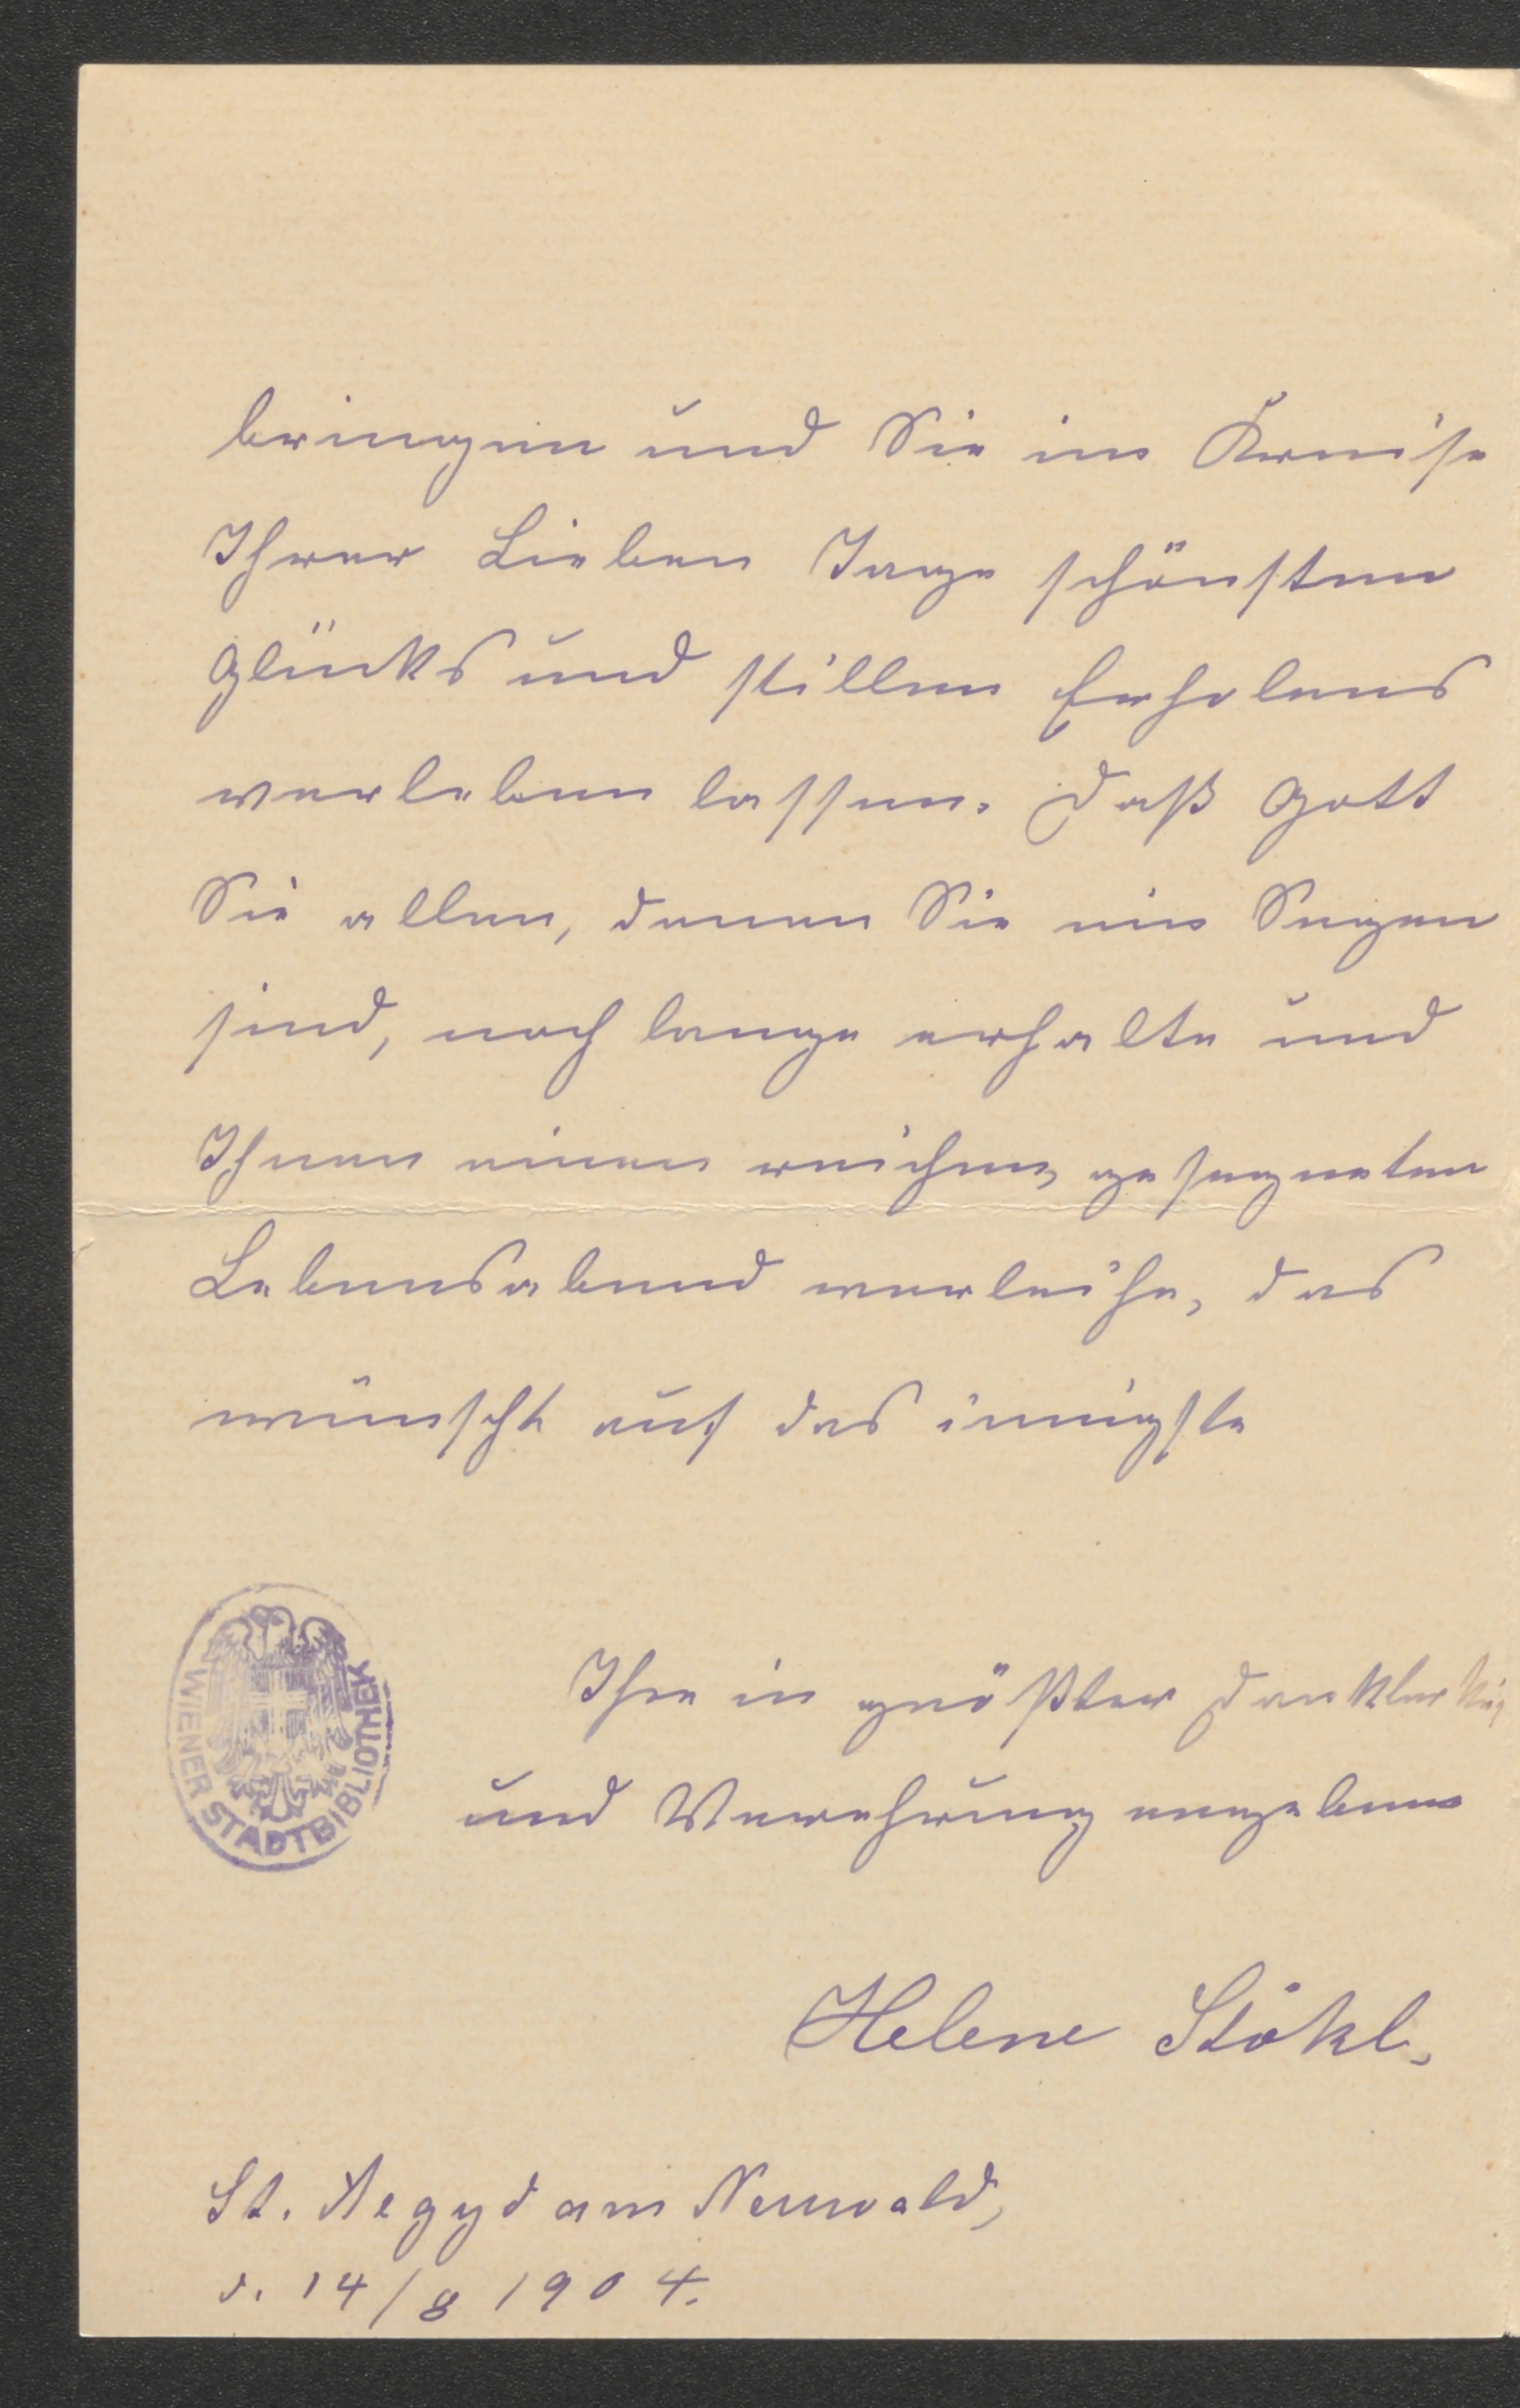 bringen und Sie im Kreise
Ihrer Lieben Tage schönsten
Glücks und stillen Erholens
verleben lassen. Daß Gott
Sie allen, denen Sie ein Segen
sind, noch lange erhalte und
Ihnen einen reichen, gesegneten
Lebensabend verleihe, das
wünscht auf das innigste
Ihre in größter Dankbarkeit
und Verehrung ergebene
Helene Stökl.
St. Aegyd am Neuwald,
d. 14/8 1904.
WIENER STADTBIBLIOTHEK